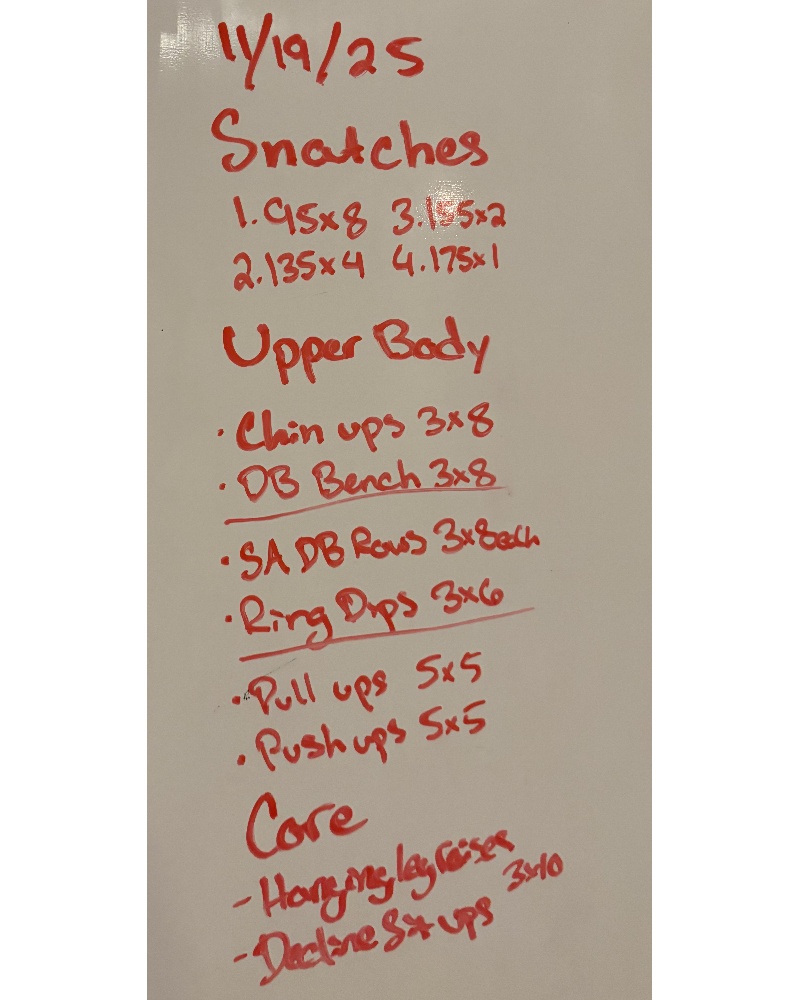 11/19/25
Snatches
1. 95x8 3. 155x2
2. 135x4 4. 175x1
Upper Body
• Chin ups 3x8
• DB Bench 3x8
• SA DB Rows 3x8each
• Ring Dips 3x6
• Pull ups 5x5
• Push ups 5x5
Core
- Hanging leg raises
3x10
- Decline Sit ups